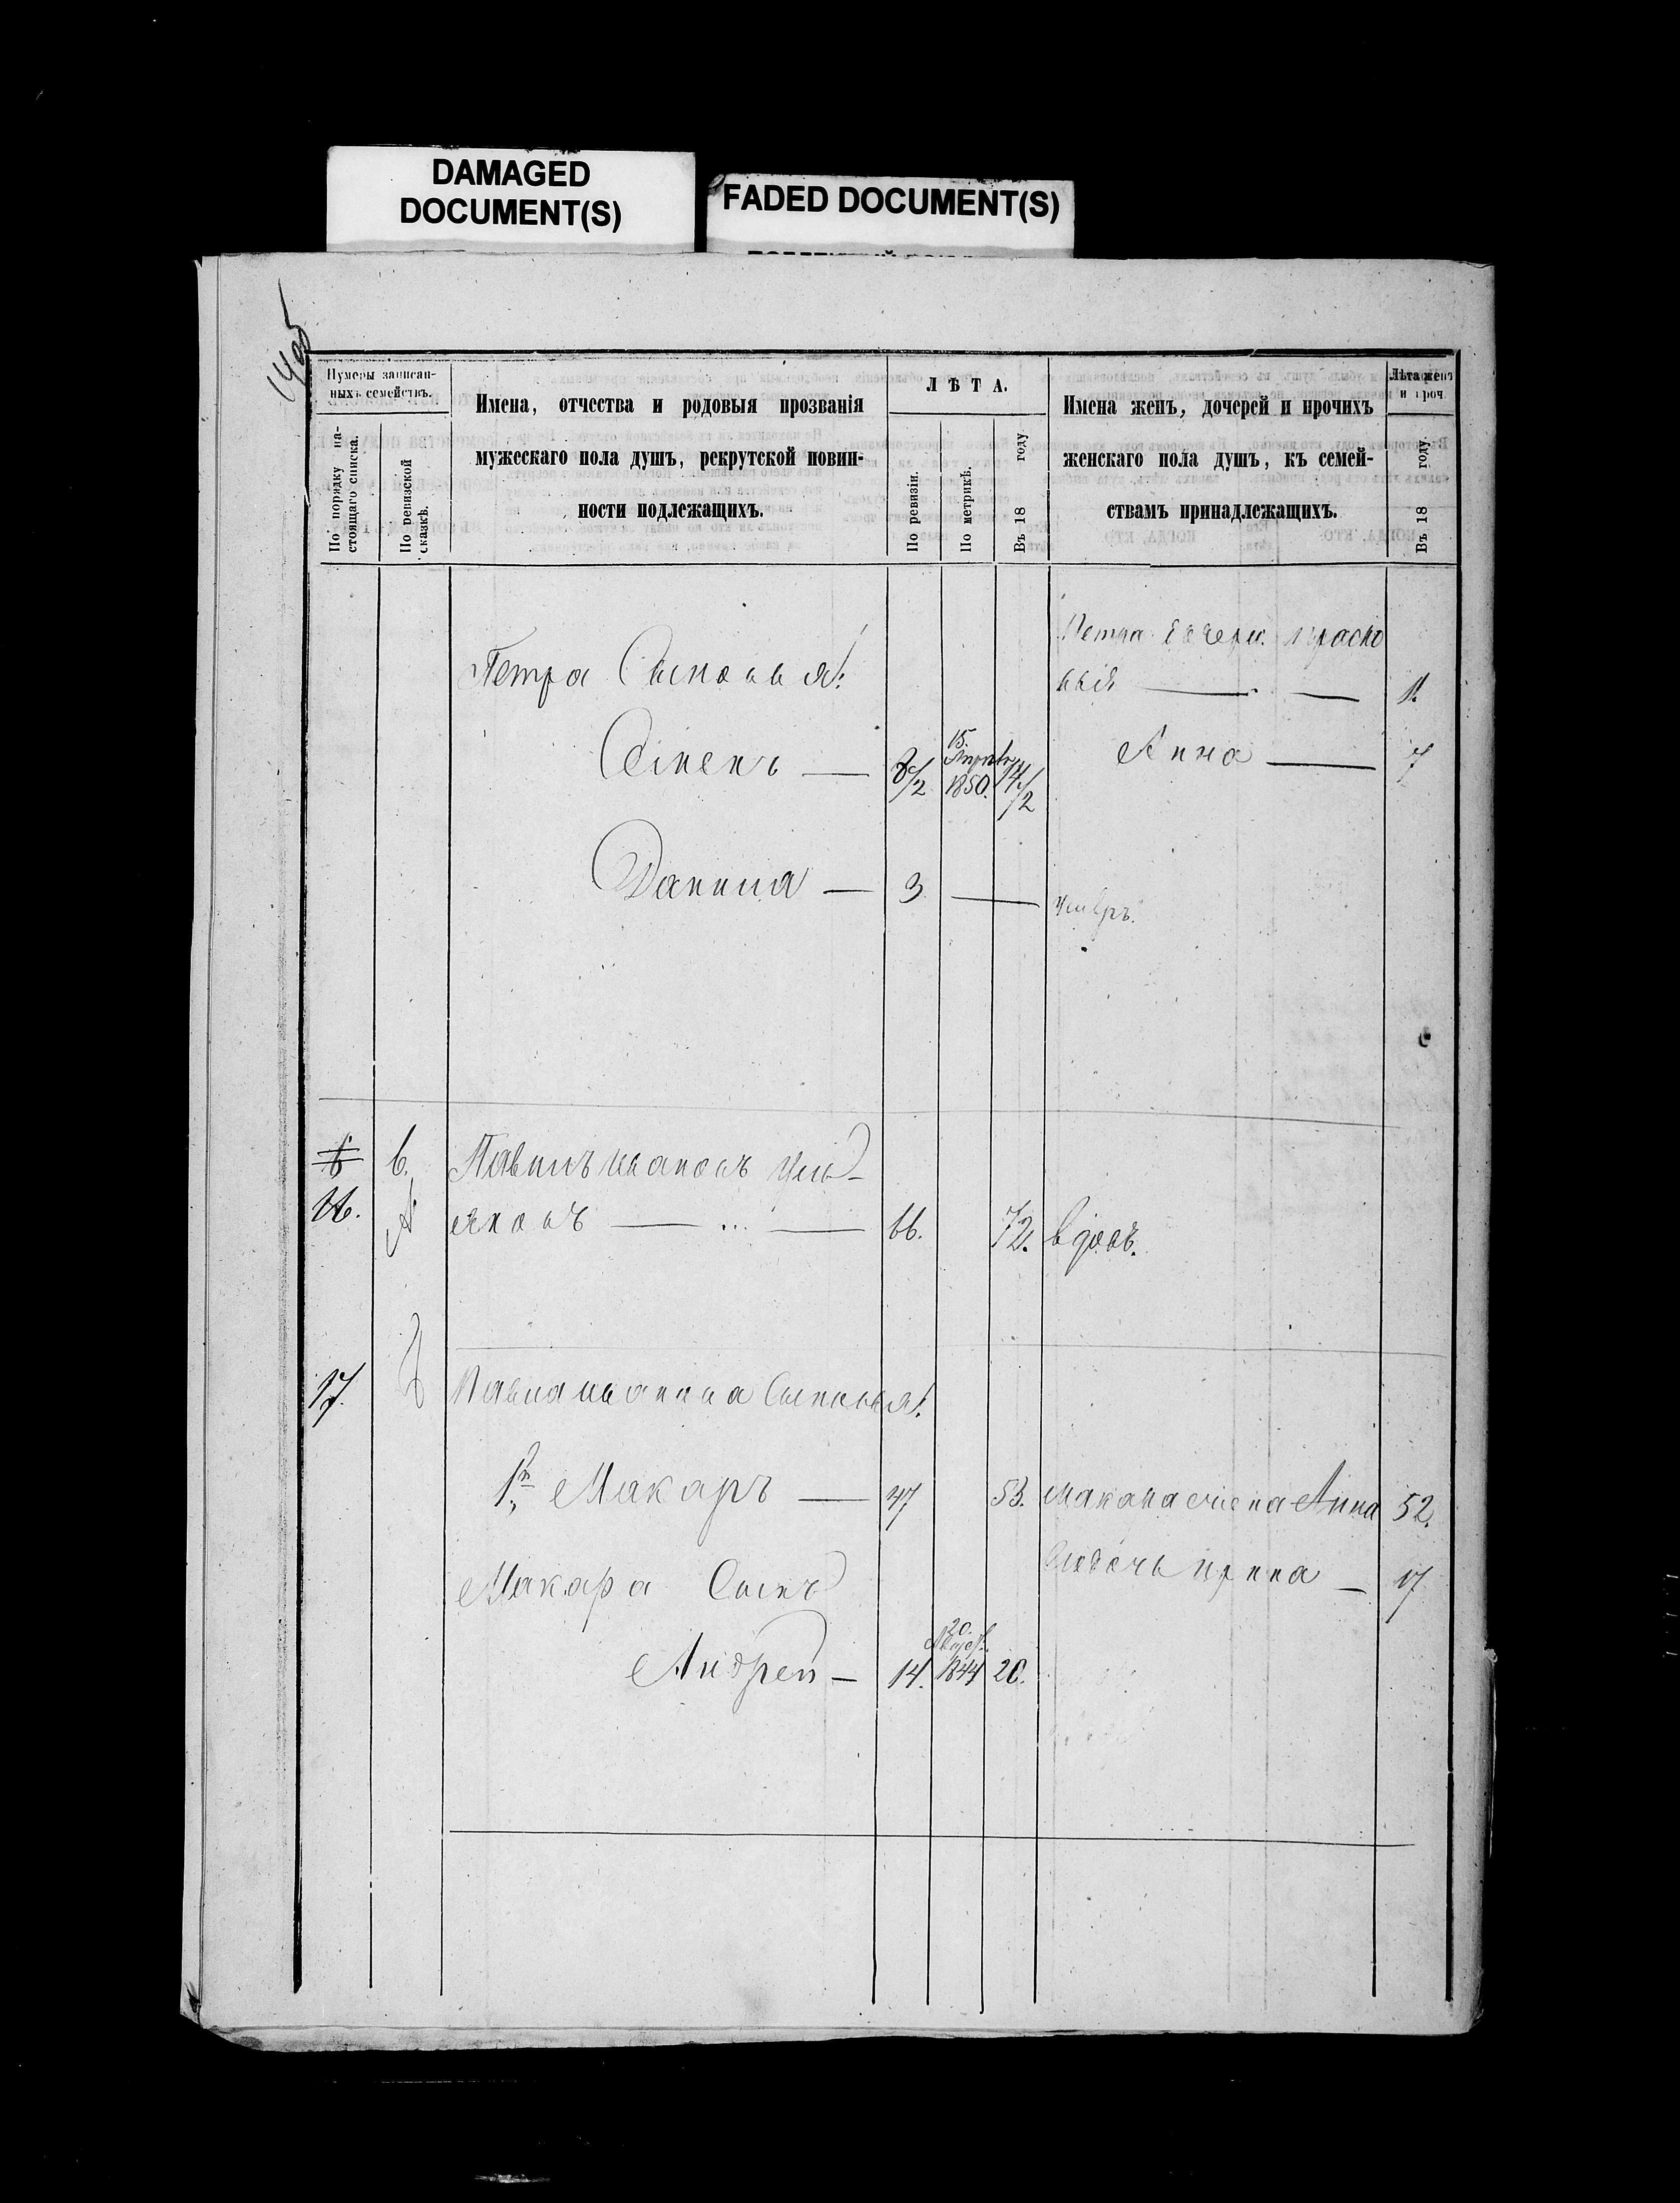 DAMAGED
DOCUMENT(S)
FADED DOCUMENT(S)
Нумеры записан-
ныхъ семействъ.
По порядку на-
стоящаго списка.
По ревизской
сказкѣ.
Имена, отчества и родовыя прозванія
мужескаго пола душъ, рекрутской повин-
ности подлежащихъ.
ЛѢТА.
По ревизіи.
По метрикѣ.
Въ 18 году
Имена женъ, дочерей и прочихъ
женскаго пола душъ, къ семей-
ствамъ принадлежащихъ.
Лѣта женъ
и проч.
Въ 18 году.
Петра дочери: Праско
вья — 11.
Петра Сыновья:
15.
Апрѣля
— 8 1/2 1850. 14 1/2
Анна — 7
Данила — 3 —
умеръ.
6 6. Павелъ Ивановъ
16. А — 66. 72. вдовъ.
17. Павла Иванова Сыновья:
1й Макаръ — 47 53. Макара жена Анна 52.
Макара Сынъ
дочь Ирина — 17
20.
Август.
Андрей — 14. 1844 20.